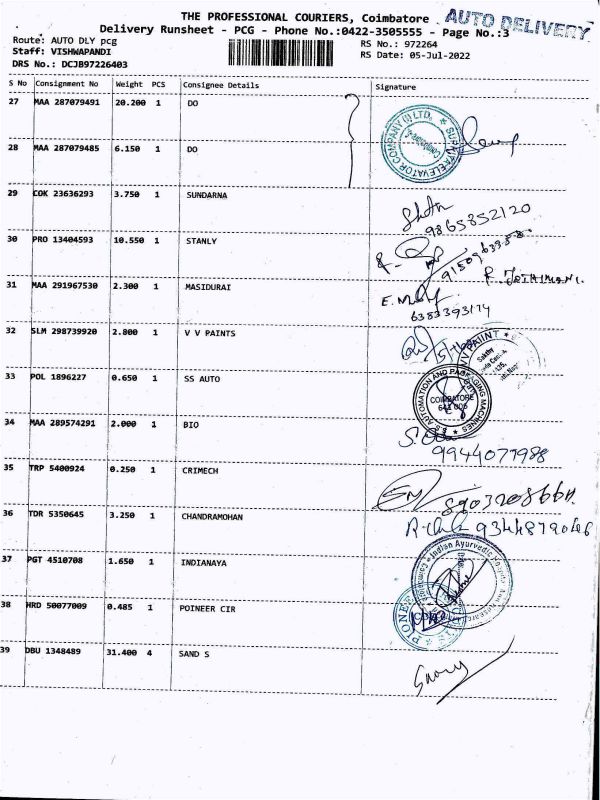 THE PROFESSIONAL COURIERS, Coimbatore
AUTO DELIVERY
Delivery Runsheet - PCG - Phone No.:0422-3505555 - Page No.:3
Route: AUTO DLY pcg
RS No.: 972264
Staff: VISHWAPANDI
RS Date: 05-Jul-2022
DRS No.: DCJB97226403
S No Consignment No Weight PCS Consignee Details Signature
27 MAA 287079491 20.200 1 DO
28 MAA 287079485 6.150 1 DO
ELEVATOR COMPANY (I) LTD.
29 COK 23636293 3.750 1 SUNDARNA
9865852120
30 PRO 13404593 10.550 1 STANLY
31 MAA 291967530 2.300 1 MASIDURAI
6383393174
32 SLM 298739920 2.800 1 V V PAINTS
33 POL 1896227 0.650 1 SS AUTO
AUTOMATION AND PACKAGING MACHINES
COIMBATORE
34 MAA 289574291 2.000 1 BIO
9944077988
35 TRP 5400924 0.250 1 CRIMECH
36 TDR 5350645 3.250 1 CHANDRAMOHAN
37 PGT 4510708 1.650 1 INDIANAYA
Indian Ayurvedic
38 HRD 50077009 0.485 1 POINEER CIR
PIONEER
39 DBU 1348489 31.400 4 SAND S